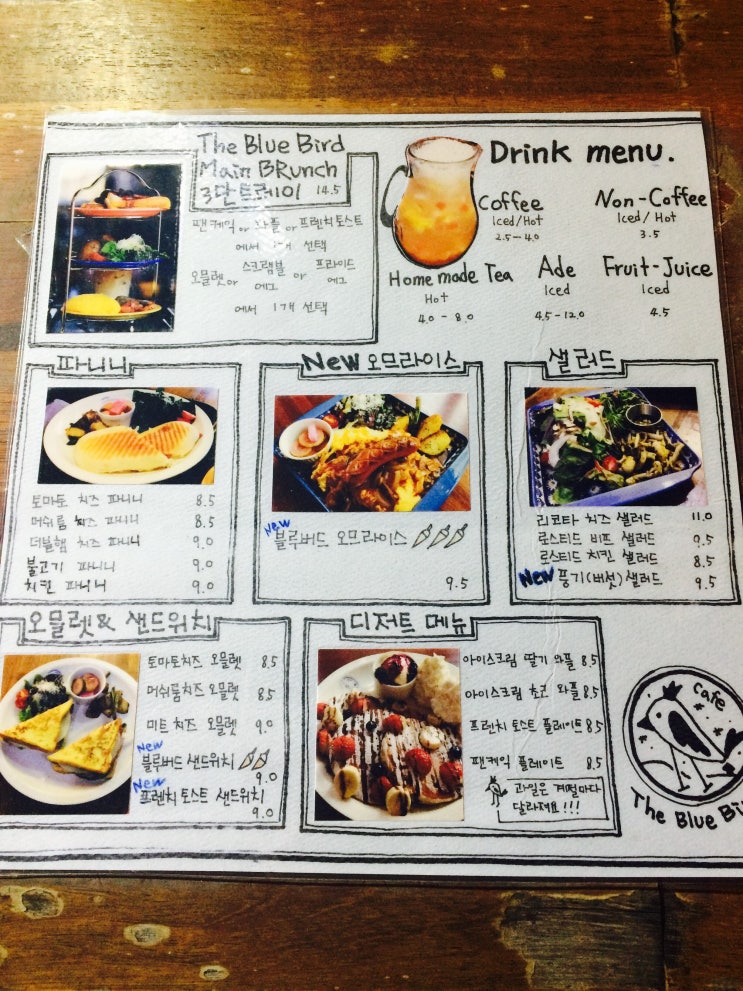 The Blue Bird
Main BRunch
3단트레이 14.5
팬케익 or 와플 or 프렌치토스트
에서 1개 선택
오믈렛 or 스크램블에그 or 프라이드에그
에서 1개 선택
Drink menu.
Coffee
Iced/Hot
2.5-4.0
Non-Coffee
Iced/Hot
3.5
Home made Tea
Hot
4.0 - 8.0
Ade
Iced
4.5-12.0
Fruit-Juice
Iced
4.5
파니니
토마토 치즈 파니니 8.5
머쉬룸 치즈 파니니 8.5
더블햄 치즈 파니니 9.0
불고기 파니니 9.0
치킨 파니니 9.0
New 오므라이스
New 블루버드 오므라이스
9.5
샐러드
리코타 치즈 샐러드 11.0
로스티드 비프 샐러드 9.5
로스티드 치킨 샐러드 8.5
New 풍기(버섯)샐러드 9.5
오믈렛 & 샌드위치
토마토치즈 오믈렛 8.5
머쉬룸치즈 오믈렛 8.5
미트 치즈 오믈렛 9.0
New
블루버드 샌드위치
9.0
New
프렌치토스트 샌드위치
9.0
디저트 메뉴
아이스크림 딸기 와플 8.5
아이스크림 초코 와플 8.5
프렌치 토스트 플레이트 8.5
팬케익 플레이트 8.5
과일은 계절마다
달라져요!!!
cafe
The Blue Bi